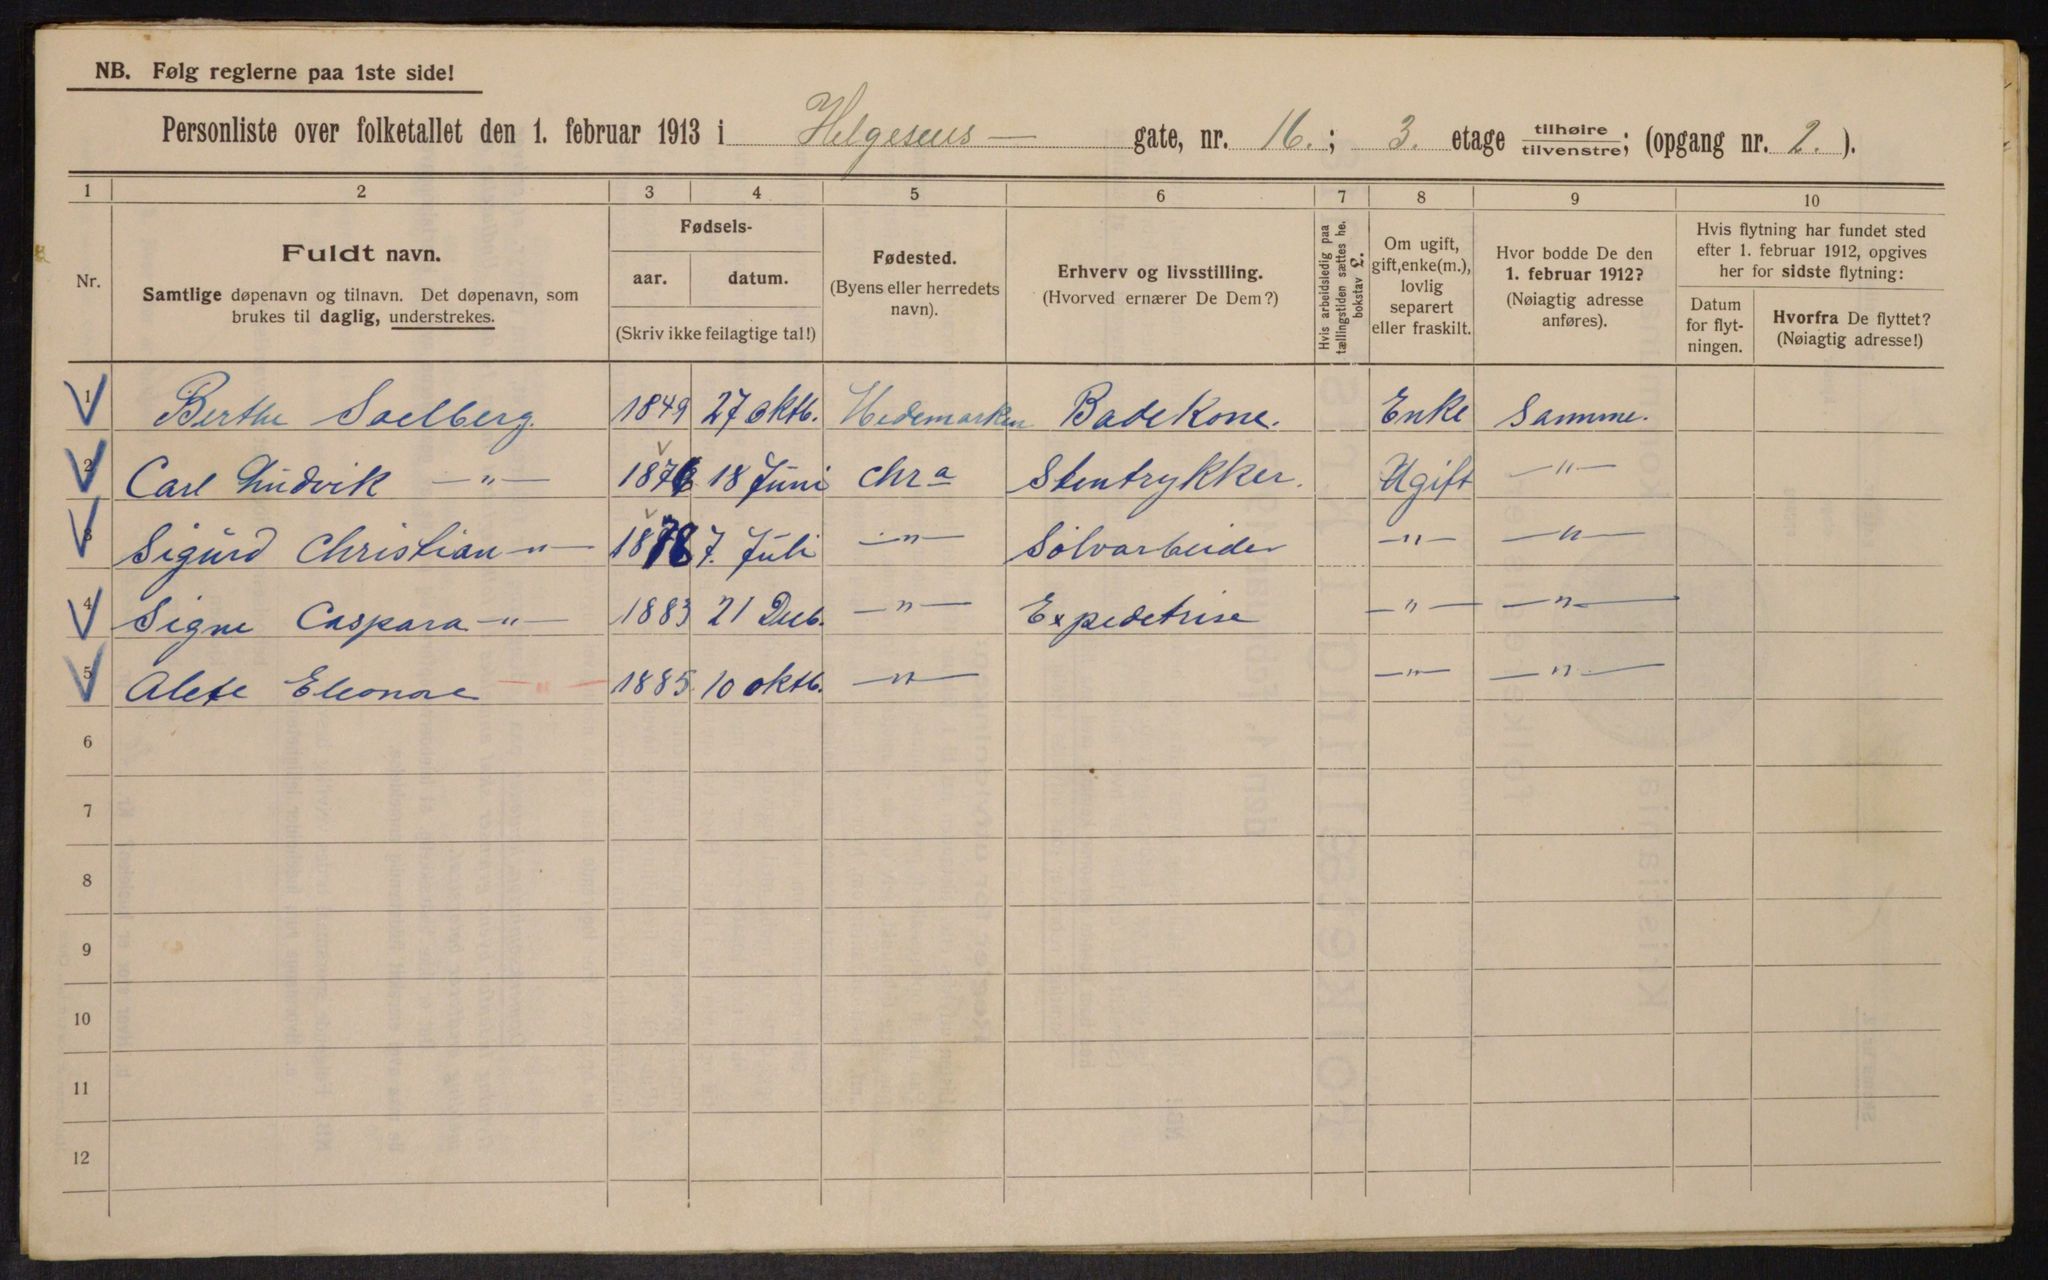 NB. Følg reglerne paa 1ste side!
Personliste over folketallet den 1. februar 1913 i Helgesens — gate, nr. 16.; 3. etage tilhøire / tilvenstre; (opgang nr. 2.).
1 2 3 4 5 6 7 8 9 10
Nr.
Fuldt navn.
Samtlige døpenavn og tilnavn. Det døpenavn, som
brukes til daglig, understrekes.
Fødsels-
aar. datum.
(Skriv ikke feilagtige tal!)
Fødested.
(Byens eller herredets
navn).
Erhverv og livsstilling.
(Hvorved ernærer De Dem?)
Hvis arbeidsledig paa
tællingstiden sættes her
bokstav L.
Om ugift,
gift, enke(m.),
lovlig
separert
eller fraskilt.
Hvor bodde De den
1. februar 1912?
(Nøiagtig adresse
anføres).
Hvis flytning har fundet sted
efter 1. februar 1912, opgives
her for sidste flytning:
Datum
for flyt-
ningen.
Hvorfra De flyttet?
(Nøiagtig adresse!)
1 Berthe Soelberg. 1849 27 oktb. Hedemarken Badekone. Enke Samme.
2 Carl Ludvik —"— 1876 18 Juni Chra Stentrykker. Ugift —"—
3 Sigurd Christian —"— 1878 7. Juli —"— Sølvarbeider —"— —"—
4 Signe Caspara —"— 1883 21 Deeb. —"— Expedetrise —"— —"—
5 Alete Eleonore —"— 1885 10 oktb. —"— —"— —"—
6
7
8
9
10
11
12